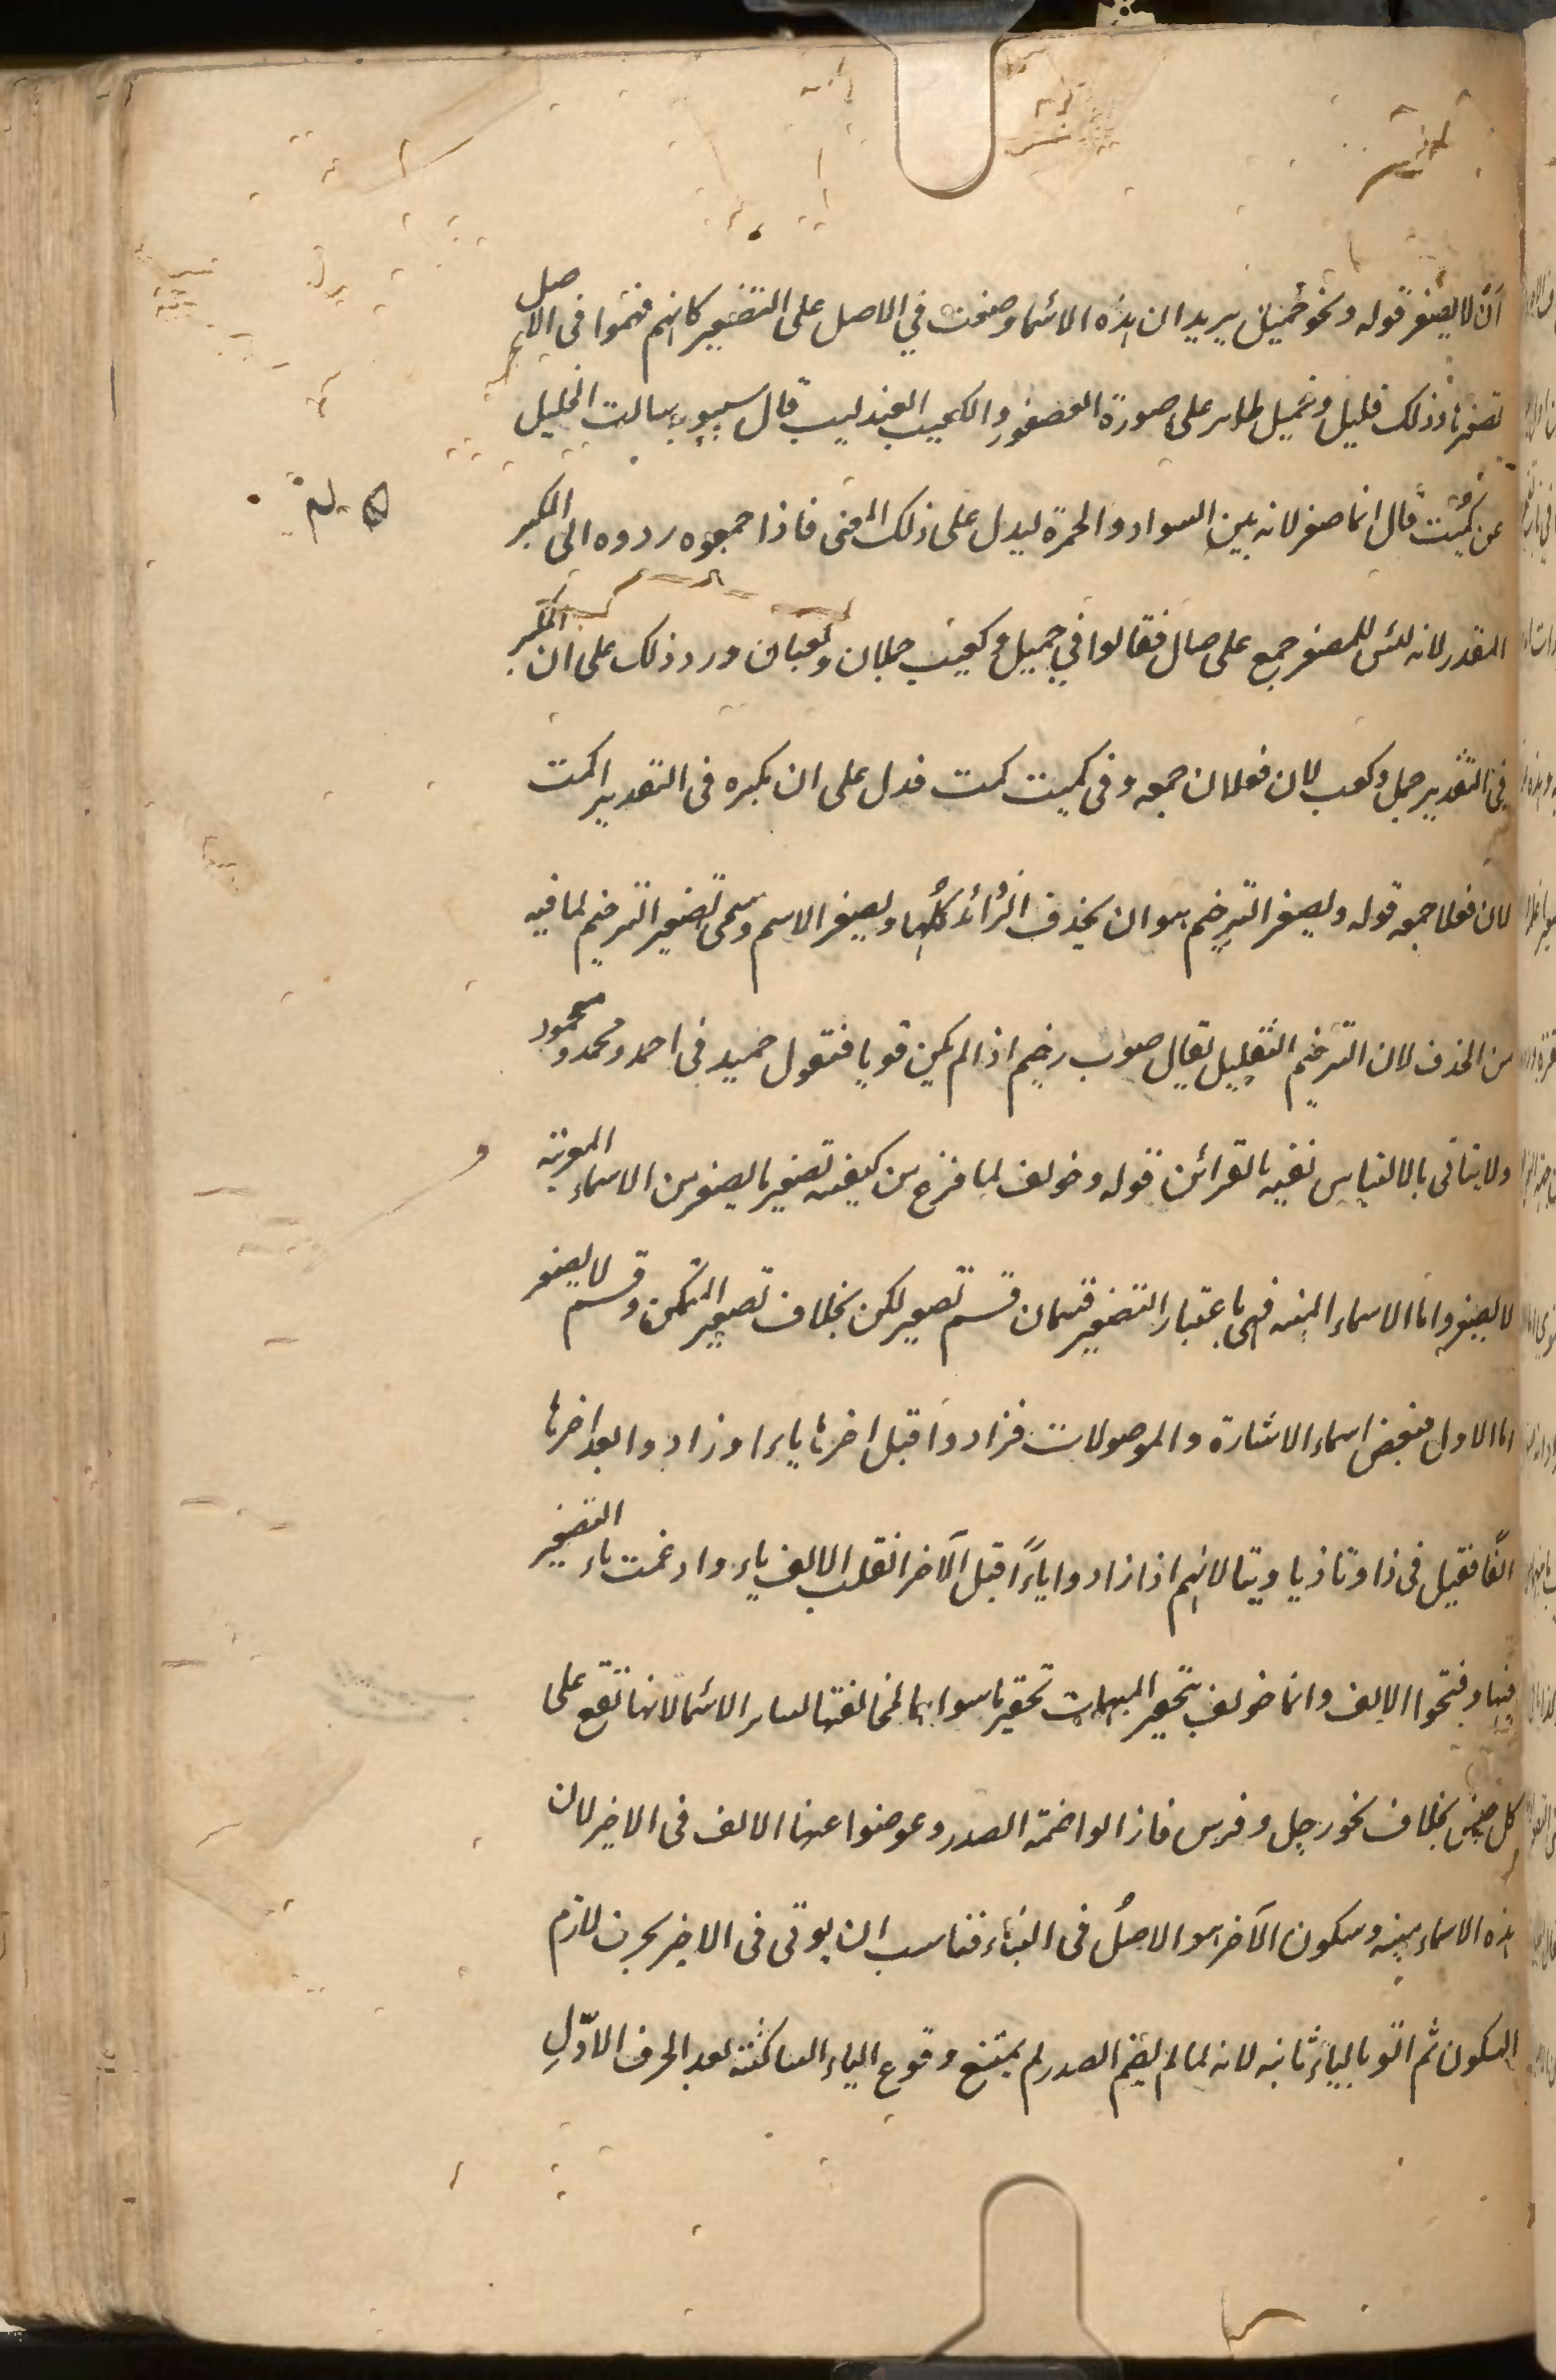 ان لا يصغر قوله ونحو جميل يريد ان هذه الاسماء وضعت في الاصل على التصغير كانهم فهموا في الاصل
تصغيرها وذلك قليل وجميل طاير على صورة العصفور والكعيب العندليب قال سيبويه سالت الخليل
عن كميت قال انما صغر لانه بين السواد والحمرة ليدل على ذلك المعنى فاذا جمعوه ردوه الى المكبر
المقدر لانه ليس للمصغر جمع على حال فقالوا في جميل وكعيب جملان وكعبان ورد ذلك على ان المكبر
في التقدير جمل وكعب لان فعلان جمعه وفي كميت كمت فدل على ان مكبره في التقدير اكمت
لان فعلا جمعه قوله وتصغير الترخيم هو ان يحذف الزوائد كلها ويصغر الاسم وسمى تصغير الترخيم لما فيه
من الحذف لان الترخيم التقليل يقال صوب رخيم اذا لم يكن قويا فتقول حميد في احمد ومحمد ومحمود
ولا يبالى بالالتباس نفيه بالقرائن قوله وخولف لما فرغ من كيفية تصغير ما يصغر من الاسماء المعربة
لا يصغر واما الاسماء المبنية فهي باعتبار التصغير قسمان قسم تصغير لكن بخلاف تصغير المتمكن وقسم لا يصغر
اما الاول فبعض اسماء الاشارة والموصولات فزادوا قبل اخرها ياء وزادوا بعد اخرها
الفا فقيل في ذا وتا ذيا وتيا لانهم اذا زادوا ياءً قبل الآخر انقلب الالف ياء وادغمت ياء التصغير
فيها وفتحوا الالف وانما خولف بتحقير المبهمات تحقير ما سواها لمخالفتها لساير الاسماء لانها تقع على
كل جنس بخلاف نحو رجل وفرس فازالوا ضمة الصدر وعوضوا عنها الالف في الاخير لان
هذه الاسماء مبنية وسكون الآخر هو الاصل في البناء فناسب ان يوتى في الاخير بحرف لازم
السكون ثم اتو بالياء ثانية لانه لما لم يضم الصدر لم يمتنع وقوع الياء الساكنة بعد الحرف الاوّلِ